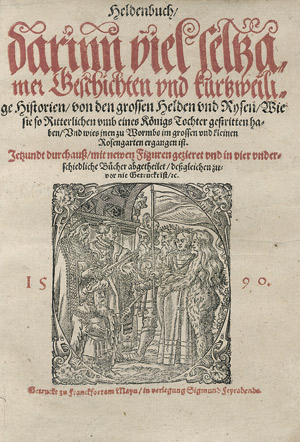 Heldenbuch/
darinn viel seltza,
mer Geschichten vnd kurtzweili,
ge Historien / von den grossen Helden vnd Rysen / Wie
sie so Ritterlichen vmb eines Königs Tochter gestritten ha-
ben / Vnd wies jnen zu Wormbs im grossen vnd kleinen
Rosengarten ergangen ist.
Jetzundt durchauß / mit newen Figuren gezieret vnd in vier vnder-
schiedliche Bücher abgetheilet / deßgleichen zu-
vor nie Getruckt ist / ꝛc.
15 90.
Getruckt zu Franckfort am Mayn / in verlegung Sigmund Feyrabends.